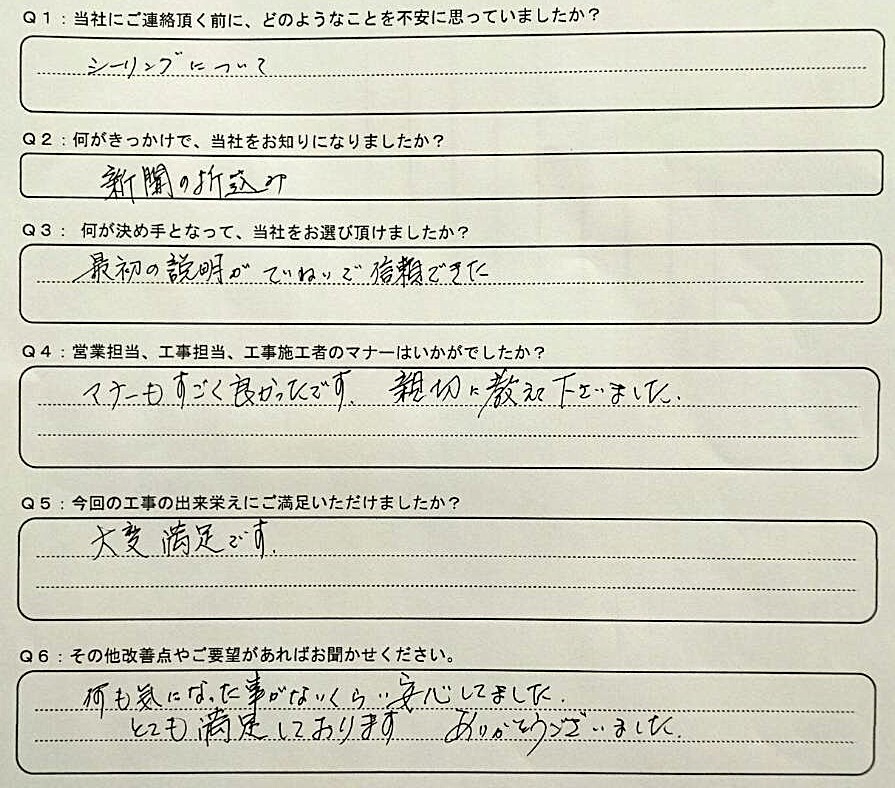 Q1：当社にご連絡頂く前に、どのようなことを不安に思っていましたか？
シーリングについて
Q2：何がきっかけで、当社をお知りになりましたか？
新聞の折込み
Q3： 何が決め手となって、当社をお選び頂けましたか？
最初の説明がていねいで信頼できた
Q4：営業担当、工事担当、工事施工者のマナーはいかがでしたか？
マナーもすごく良かったです。 親切に教えて下さいました。
Q5：今回の工事の出来栄えにご満足いただけましたか？
大変満足です。
Q6：その他改善点やご要望があればお聞かせください。
何も気になった事がないくらい安心してました。
とても満足しております ありがとうございました。